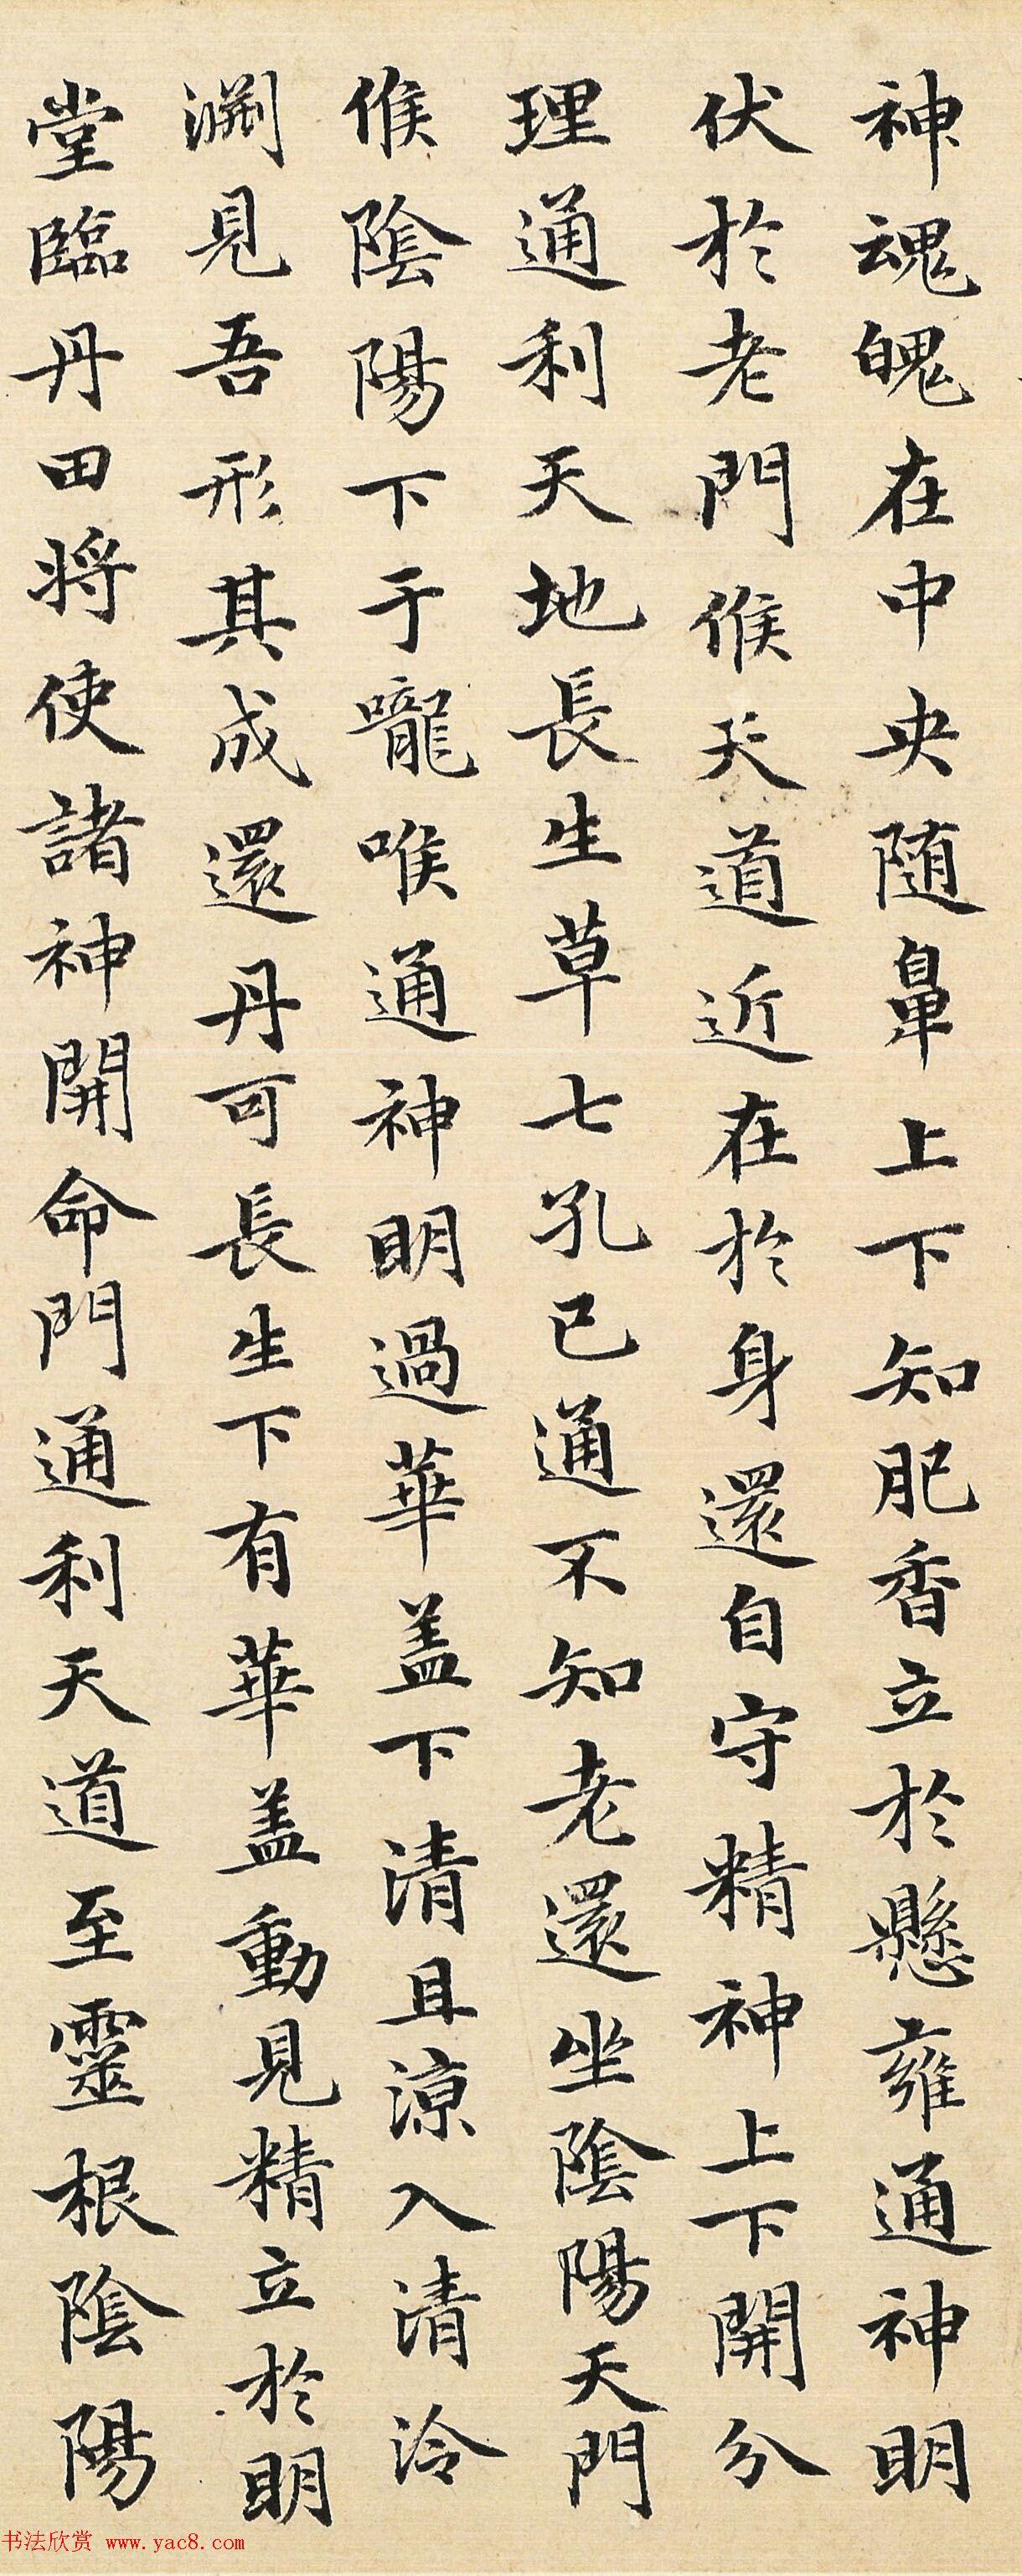 神魂魄在中央随鼻上下知肥香立於懸雍通神明
伏於老門候天道近在於身還自守精神上下開分
理通利天地長生草七孔已通不知老還坐陰陽天門
候陰陽下于嚨喉通神明過華盖下清且涼入清泠
渊見吾形其成還丹可長生下有華盖動見精立於明
堂臨丹田将使諸神開命門通利天道至靈根陰陽
书法欣赏 www.yac8.com